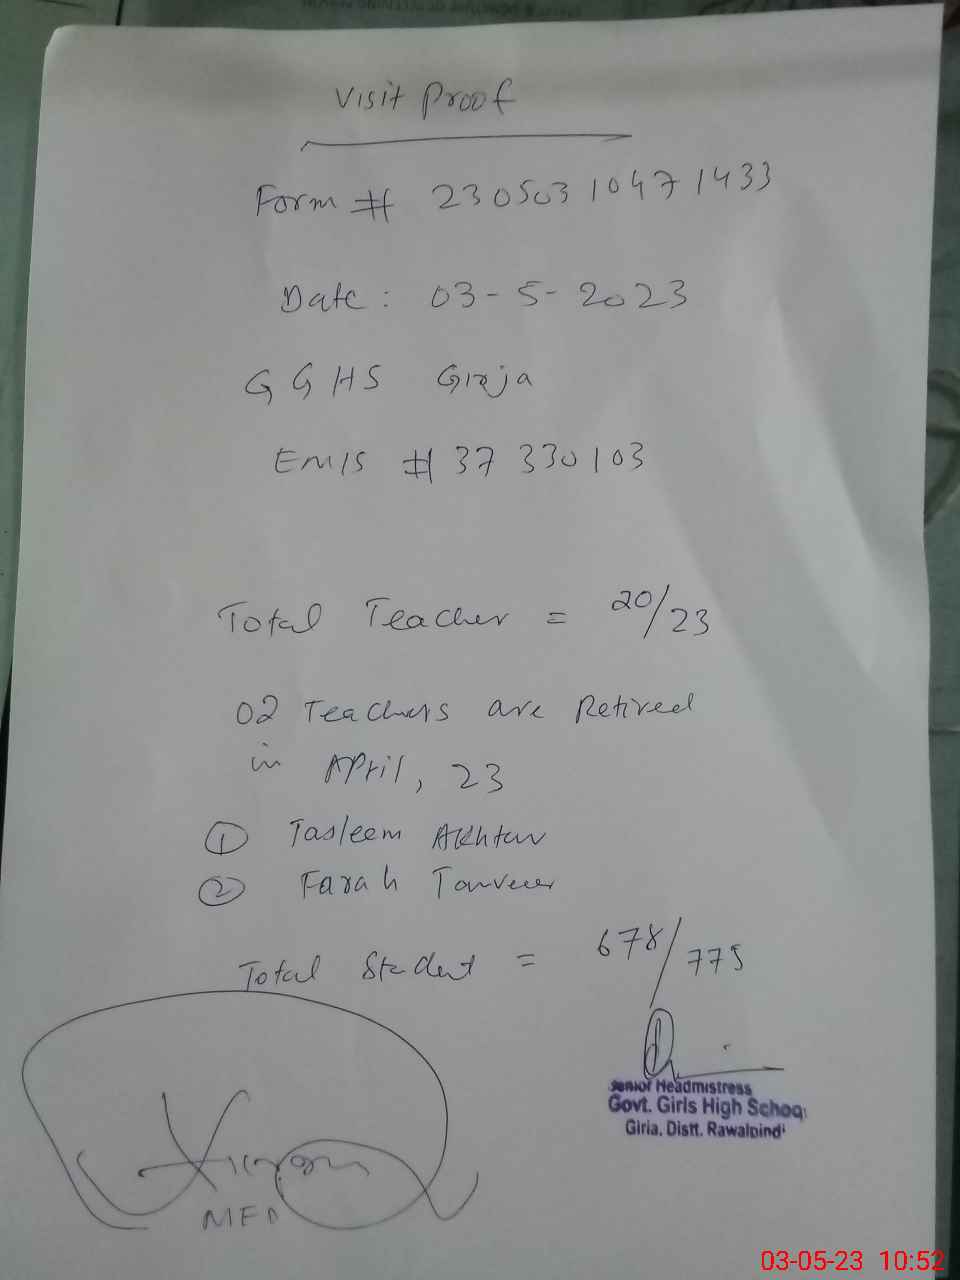 Visit Proof
Form # 230503 10471433
Date: 03-5-2023
GGHS Girja
EMIS # 37330103
Total Teacher = 20/23
02 Teachers are Retired
in April, 23
① Tasleem Akhtar
② Farah Tanveer
Total Student = 678/775
Senior Headmistress
Govt. Girls High School
Girja, Distt. Rawalpindi
03-05-23 10:52